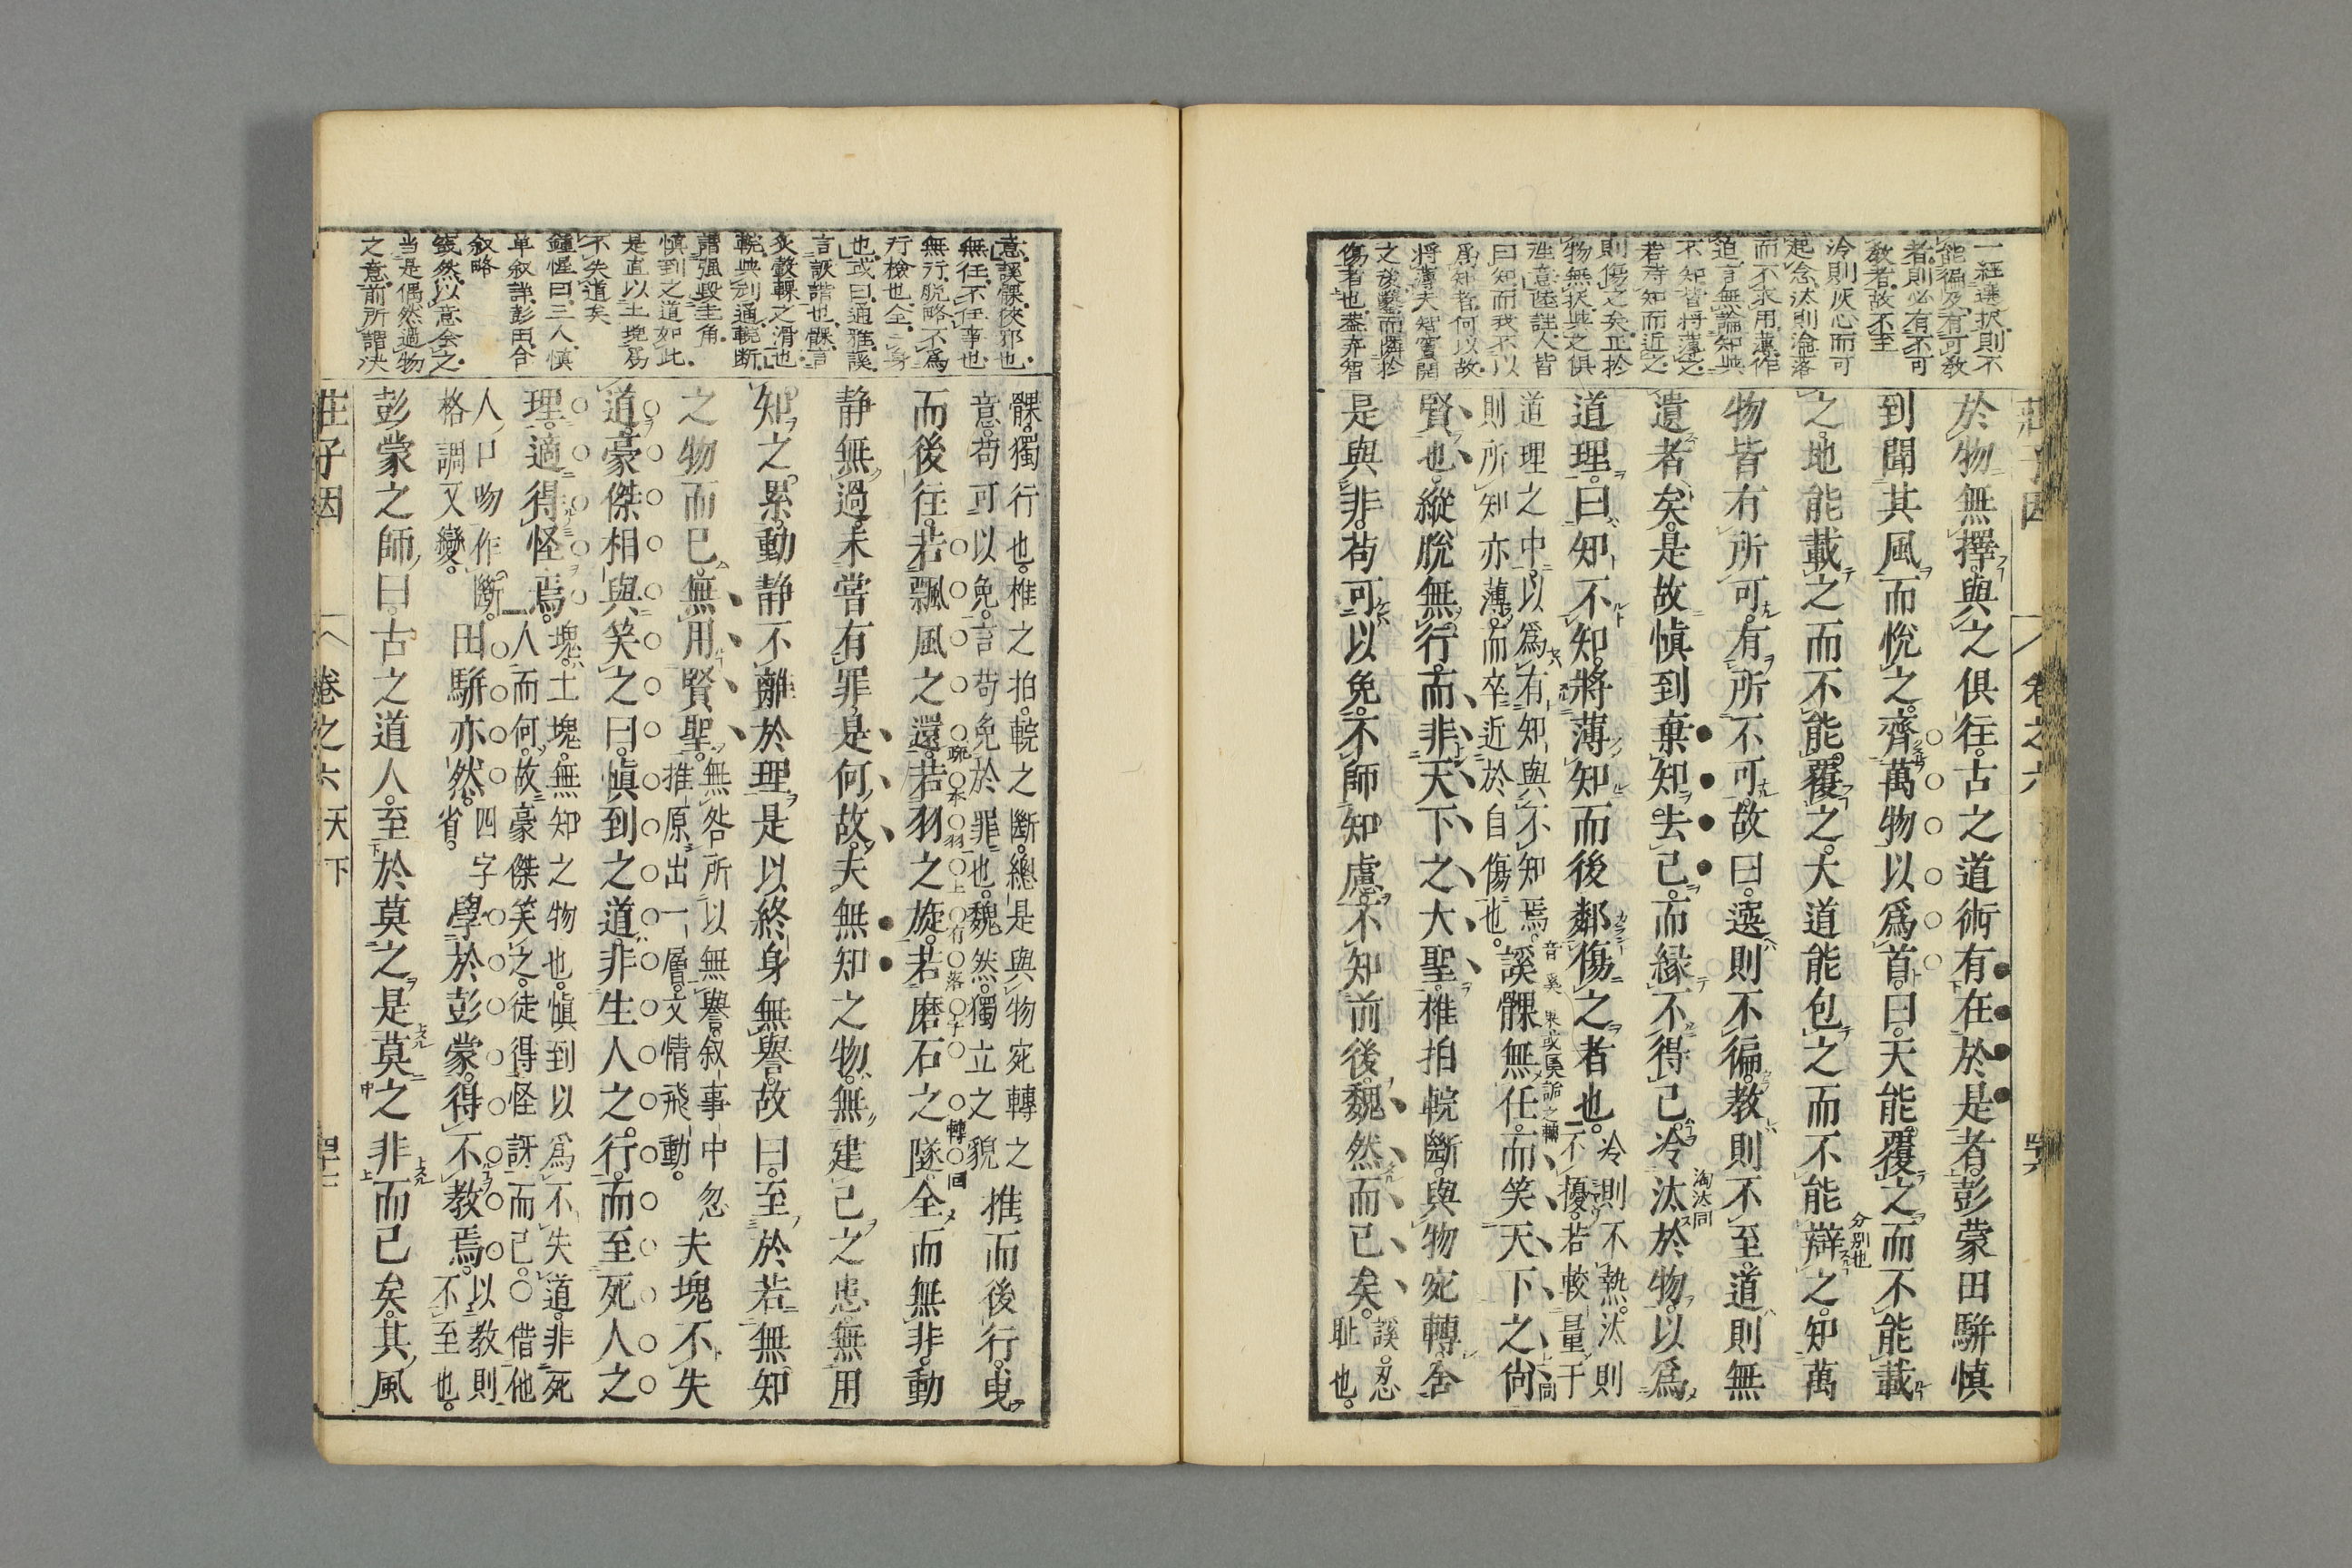 莊子因
卷之六
於物無擇與之俱往古之道術有在於是者彭蒙田駢慎
到聞其風而悅之齊萬物以為首曰天能覆之而不能載
之地能載之而不能覆之大道能包之而不能辯之知萬
分別也
物皆有所可有所不可故曰選則不徧教則不至道則無
遺者矣是故慎到棄知去己而緣不得已冷汰於物以為
淘汰同
道理曰知不知將薄知而後鄰傷之者也
冷則不熱汰則
不擾若較量于
道理之中以為有知與不知焉
則所知亦薄而卒近於自傷也
謑髁無任而笑天下之尚
音奚
賢也縱脫無行而非天下之大聖椎拍輐斷與物宛轉舍
是與非苟可以免不師知慮不知前後魏然而已矣
謑忍
耻也
一經選択則不
能徧及有可教
者則必有不可
教者故不至
冷則灰心而可
起念汰則淪落
而不求用薄作
迫言無論知與
不知皆將薄之
若待知而近之
則傷之矣正於
物無択與之俱
徃意陸註人皆
曰知而我不以
為知者何以故
將薄夫智竇開
傷者也蓋弃智
髁獨行也椎之拍輐之斷總是與物宛轉之
意苟可以免言苟免於罪也魏然獨立之貌
推而後行曳
而後往若飄風之還若羽之旋若磨石之隧全而無非動
靜無過未嘗有罪是何故夫無知之物無建己之患無用
知之累動靜不離於理是以終身無譽故曰至於若無知
之物而已無用賢聖
無咎所以無譽叙事中忽
推原出一層文情飛動
夫塊不失
道豪傑相與笑之曰慎到之道非生人之行而至死人之
理適得怪焉
塊土塊無知之物也慎到以為不失道非死
人而何故豪傑笑之徒得怪訝而已○借他
人口吻作斷
格調又變
田駢亦然
四字
省
學於彭蒙得不教焉
以教則
不至也
彭蒙之師曰古之道人至於莫之是莫之非而已矣其風
意謑髁俠邪也
無任不任事也
無行脱略不為
行檢也全身
也或曰通雅謑
言詬諧也髁言
炙轂輠之滑也
輐與刓通輐断
謂强毀圭角
慎到之道如此
是直以土塊為
不失道矣
鍾惺曰三人慎
单叙詳彭田合
叙略
当是偶然過物
之意前所謂決
莊子因
卷之六
天下